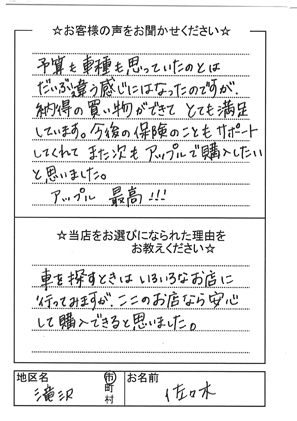 ☆お客様の声をお聞かせください☆
予算も車種も思っていたのとは
だいぶ違う感じにはなったのですが、
納得の買い物ができて とても満足
しています。今後の保険のこともサポート
してくれて また次も アップルで購入したい
と思いました。
アップル 最高!!!
☆当店をお選びになられた理由を
お教えください☆
車を探すときは いろいろなお店に
行ってみますが、ここのお店なら安心
して購入できると思いました。
地区名 滝沢 市町村 お名前 佐々木